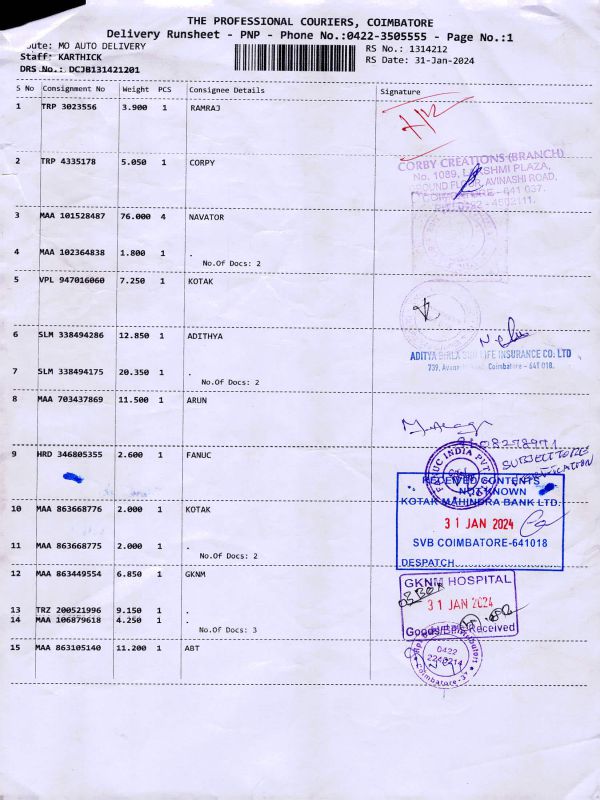 THE PROFESSIONAL COURIERS, COIMBATORE
Delivery Runsheet - PNP - Phone No.:0422-3505555 - Page No.:1
oute: MO AUTO DELIVERY RS No.: 1314212
Staff: KARTHICK RS Date: 31-Jan-2024
DRS No.: DCJB131421201
S No Consignment No Weight PCS Consignee Details Signature
1 TRP 3023556 3.900 1 RAMRAJ
2 TRP 4335178 5.050 1 CORPY
CORBY CREATIONS (BRANCH)
No. 1089, LAKSHMI PLAZA,
AVINASHI ROAD,
COIMBATORE - 641 037.
3 MAA 101528487 76.000 4 NAVATOR
4 MAA 102364838 1.800 1 .
No.Of Docs: 2
5 VPL 947016060 7.250 1 KOTAK
6 SLM 338494286 12.850 1 ADITHYA
ADITYA BIRLA SUN LIFE INSURANCE CO. LTD
739, Road, Coimbatore - 641 018.
7 SLM 338494175 20.350 1 .
No.Of Docs: 2
8 MAA 703437869 11.500 1 ARUN
9 HRD 346805355 2.600 1 FANUC
SUBJECT TO RE
FANUC INDIA PVT
RECEIVED CONTENTS
NOT KNOWN
KOTAK MAHINDRA BANK LTD.
31 JAN 2024
SVB COIMBATORE-641018
DESPATCH
10 MAA 863668776 2.000 1 KOTAK
11 MAA 863668775 2.000 1 .
No.Of Docs: 2
12 MAA 863449554 6.850 1 GKNM
GKNM HOSPITAL
31 JAN 2024
Received
13 TRZ 200521996 9.150 1 .
14 MAA 106879618 4.250 1 .
No.Of Docs: 3
15 MAA 863105140 11.200 1 ABT
0422
Coimbatore-37